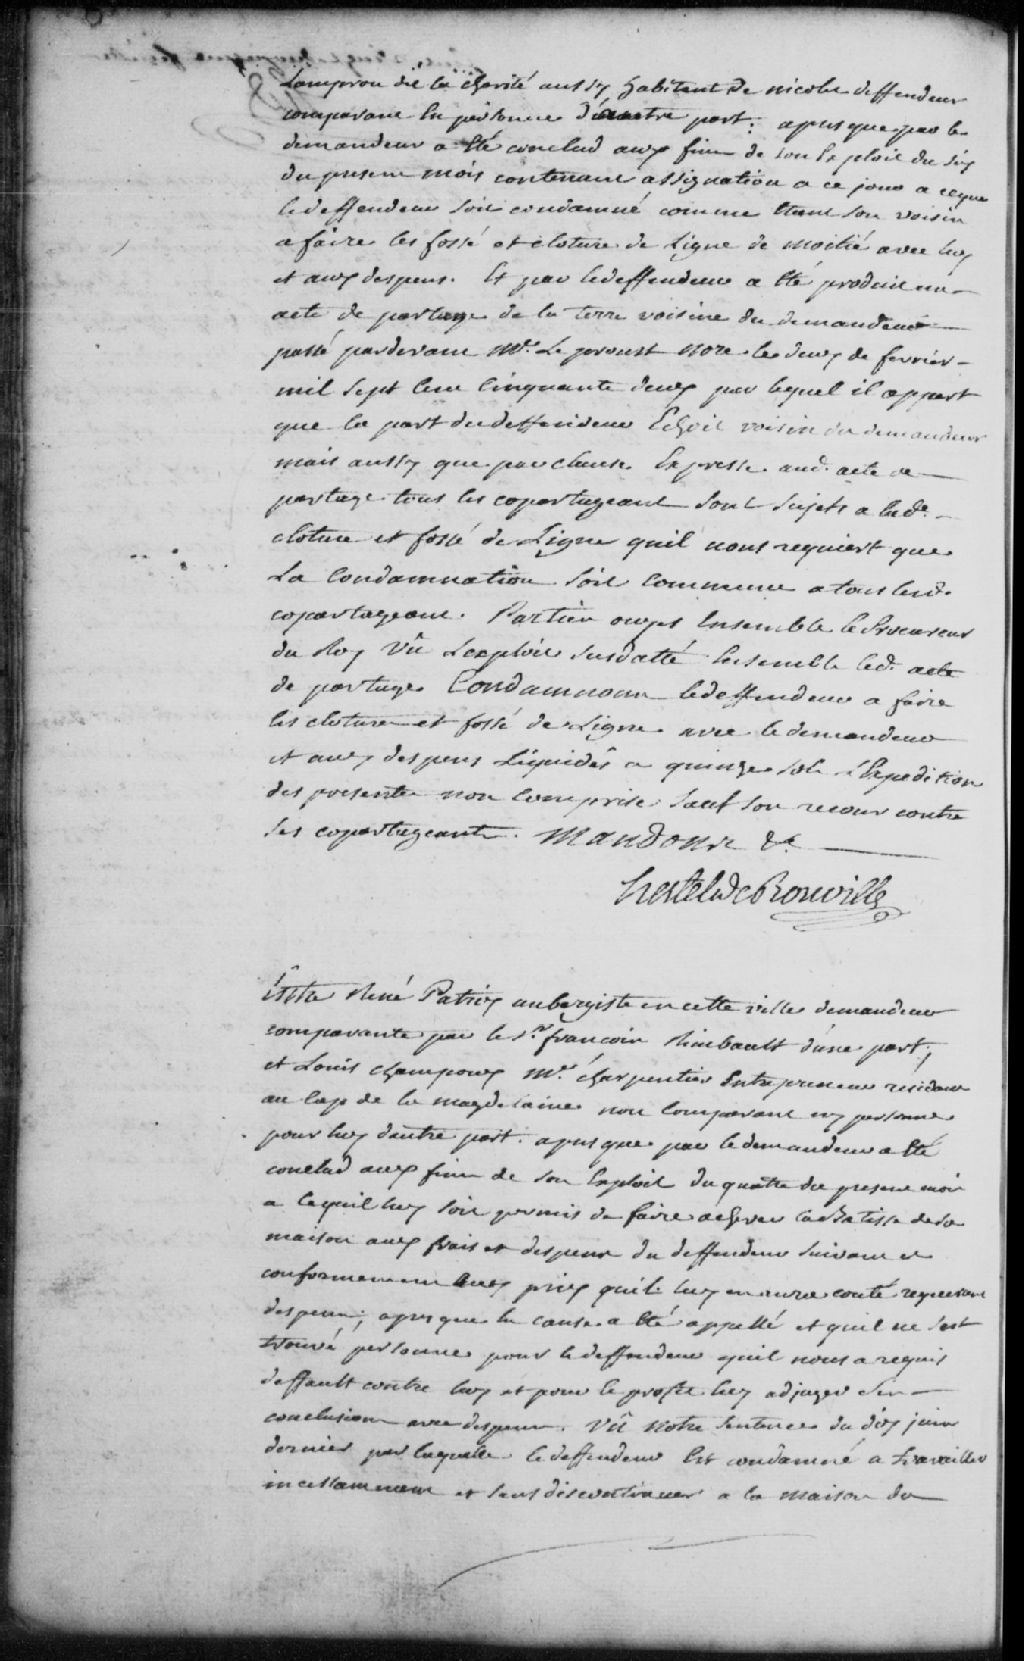 Lamprou dit la charité aussy habitent de nicolet deffendeur
comparant en personne d'autre part; apres que par le
demandeur a été conclud aux fins de son Exploit du six
du present mois contenant assignation a ce jour a ce que
le deffendeur soit condamné comme étant son voisin
a faire les fossé et cloture de Ligne de moitié avec luy
et aux despens. Et par le deffendeur a été produit un
acte de partage de la terre voisine du demandeur
passé pardevant Mtre Le proust Nore le deux de fevrier
mil sept cent cinquante deux par lequel il appert
que la part du deffendeur Echoit voisin du demandeur
mais aussy que par clause Expresse aud. acte de
partage tous les copartageant sont sujets a lade.
cloture et fossé de Ligne quil nous requiert que
La Condamnation soit commune a tous lesd.
copartageant. Parties ouyes Ensemble le Procureur
du Roy Vû L'exploit susdatté Ensemble led. acte
de partage Condamnons le deffendeur a faire
les cloture et fossé de Ligne avec le demandeur
et aux despens Liquidés a quinze sols l'Expedition
des presente non Comprise sauf son recour contre
ses copartageants. Mandons &c
hertel de Rouville
Entre René Patrix aubergiste en cette ville demandeur
comparante par le Sr. francois Rimbault d'une part;
et Louis champoux Me. charpentier Entrepreneur residant
au Cap de la magdelaine non Comparant ny personne
pour luy dautre part. apres que par le demandeur a été
conclud aux fins de son Exploit du quatre du present mois
a ce quil luy soit permis de faire achever la Batisse de sa
maison aux frais et despens du deffendeur suivant et
conformement aux prix quil luy en aura couté requerant
despens; apres que la cause a été appellé et quil ne s'est
trouvé personne pour le deffendeur quil nous a requis
deffault contre luy et pour le profit luy adjuger ses
conclusions avec despens. Vû Notre sentence du dix juin
dernier par laquelle le deffendeur Est condamné a travailler
incessamment et sans discontinuer a la maison du